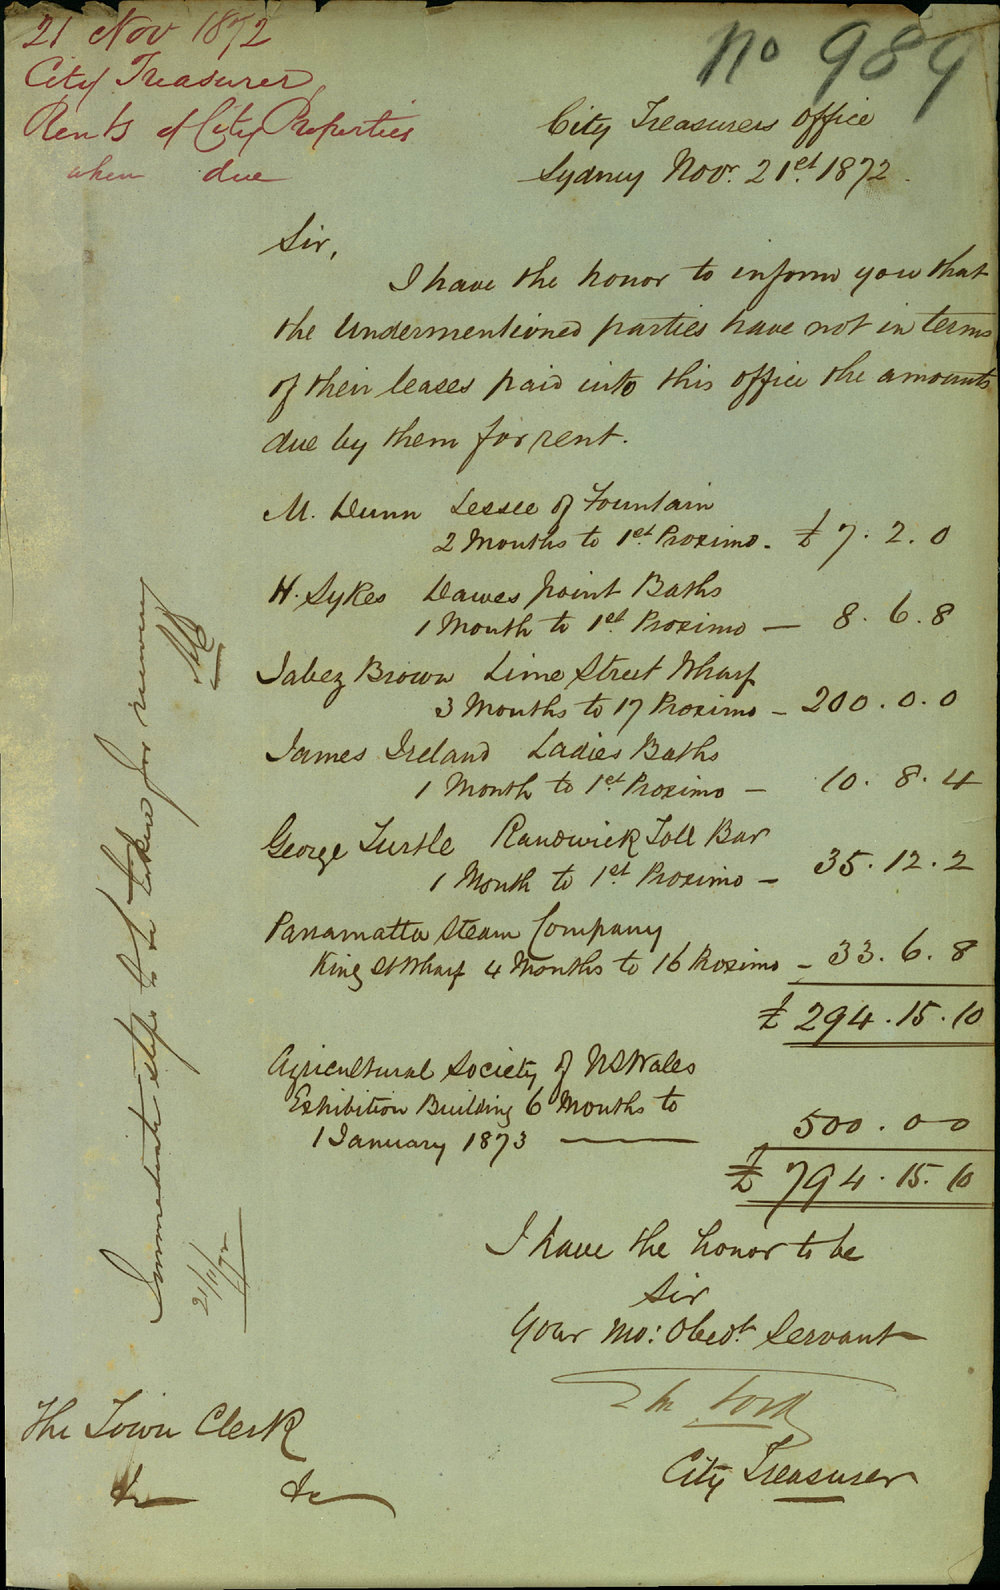 21 Nov 1872
City Treasurer
Rents of City Properties
when due
No 989
City Treasurers Office
Sydney Novr. 21st. 1872.
Sir,
I have the honor to inform you that
the Undermentioned parties have not in terms
of their leases paid into this office the amounts
due by them for rent.
M. Dunn Lessee of Fountain
2 Months to 1st. Proximo. £ 7. 2. 0
H. Sykes Dawes point Baths
1 Month to 1st. Proximo — 8. 6. 8
Jabez Brown Lime Street Wharf
3 Months to 17 Proximo — 200. 0. 0
James Ireland Ladies Baths
1 Month to 1st. Proximo — 10. 8. 4
George Turtle Randwick Toll Bar
1 Month to 1st. Proximo — 35. 12. 2
Parramatta Steam Company
King St Wharf 4 Months to 16 Proximo — 33. 6. 8
£ 294. 15. 10
Agricultural Society of NSWales
Exhibition Building 6 Months to
1 January 1873 — 500. 0 0
£ 794. 15. 10
I have the honor to be
Sir
Your Mo: Obedt. Servant
Ford
City Treasurer
The Town Clerk
&c &c
Immediate steps to be taken for recovery
21/11/72